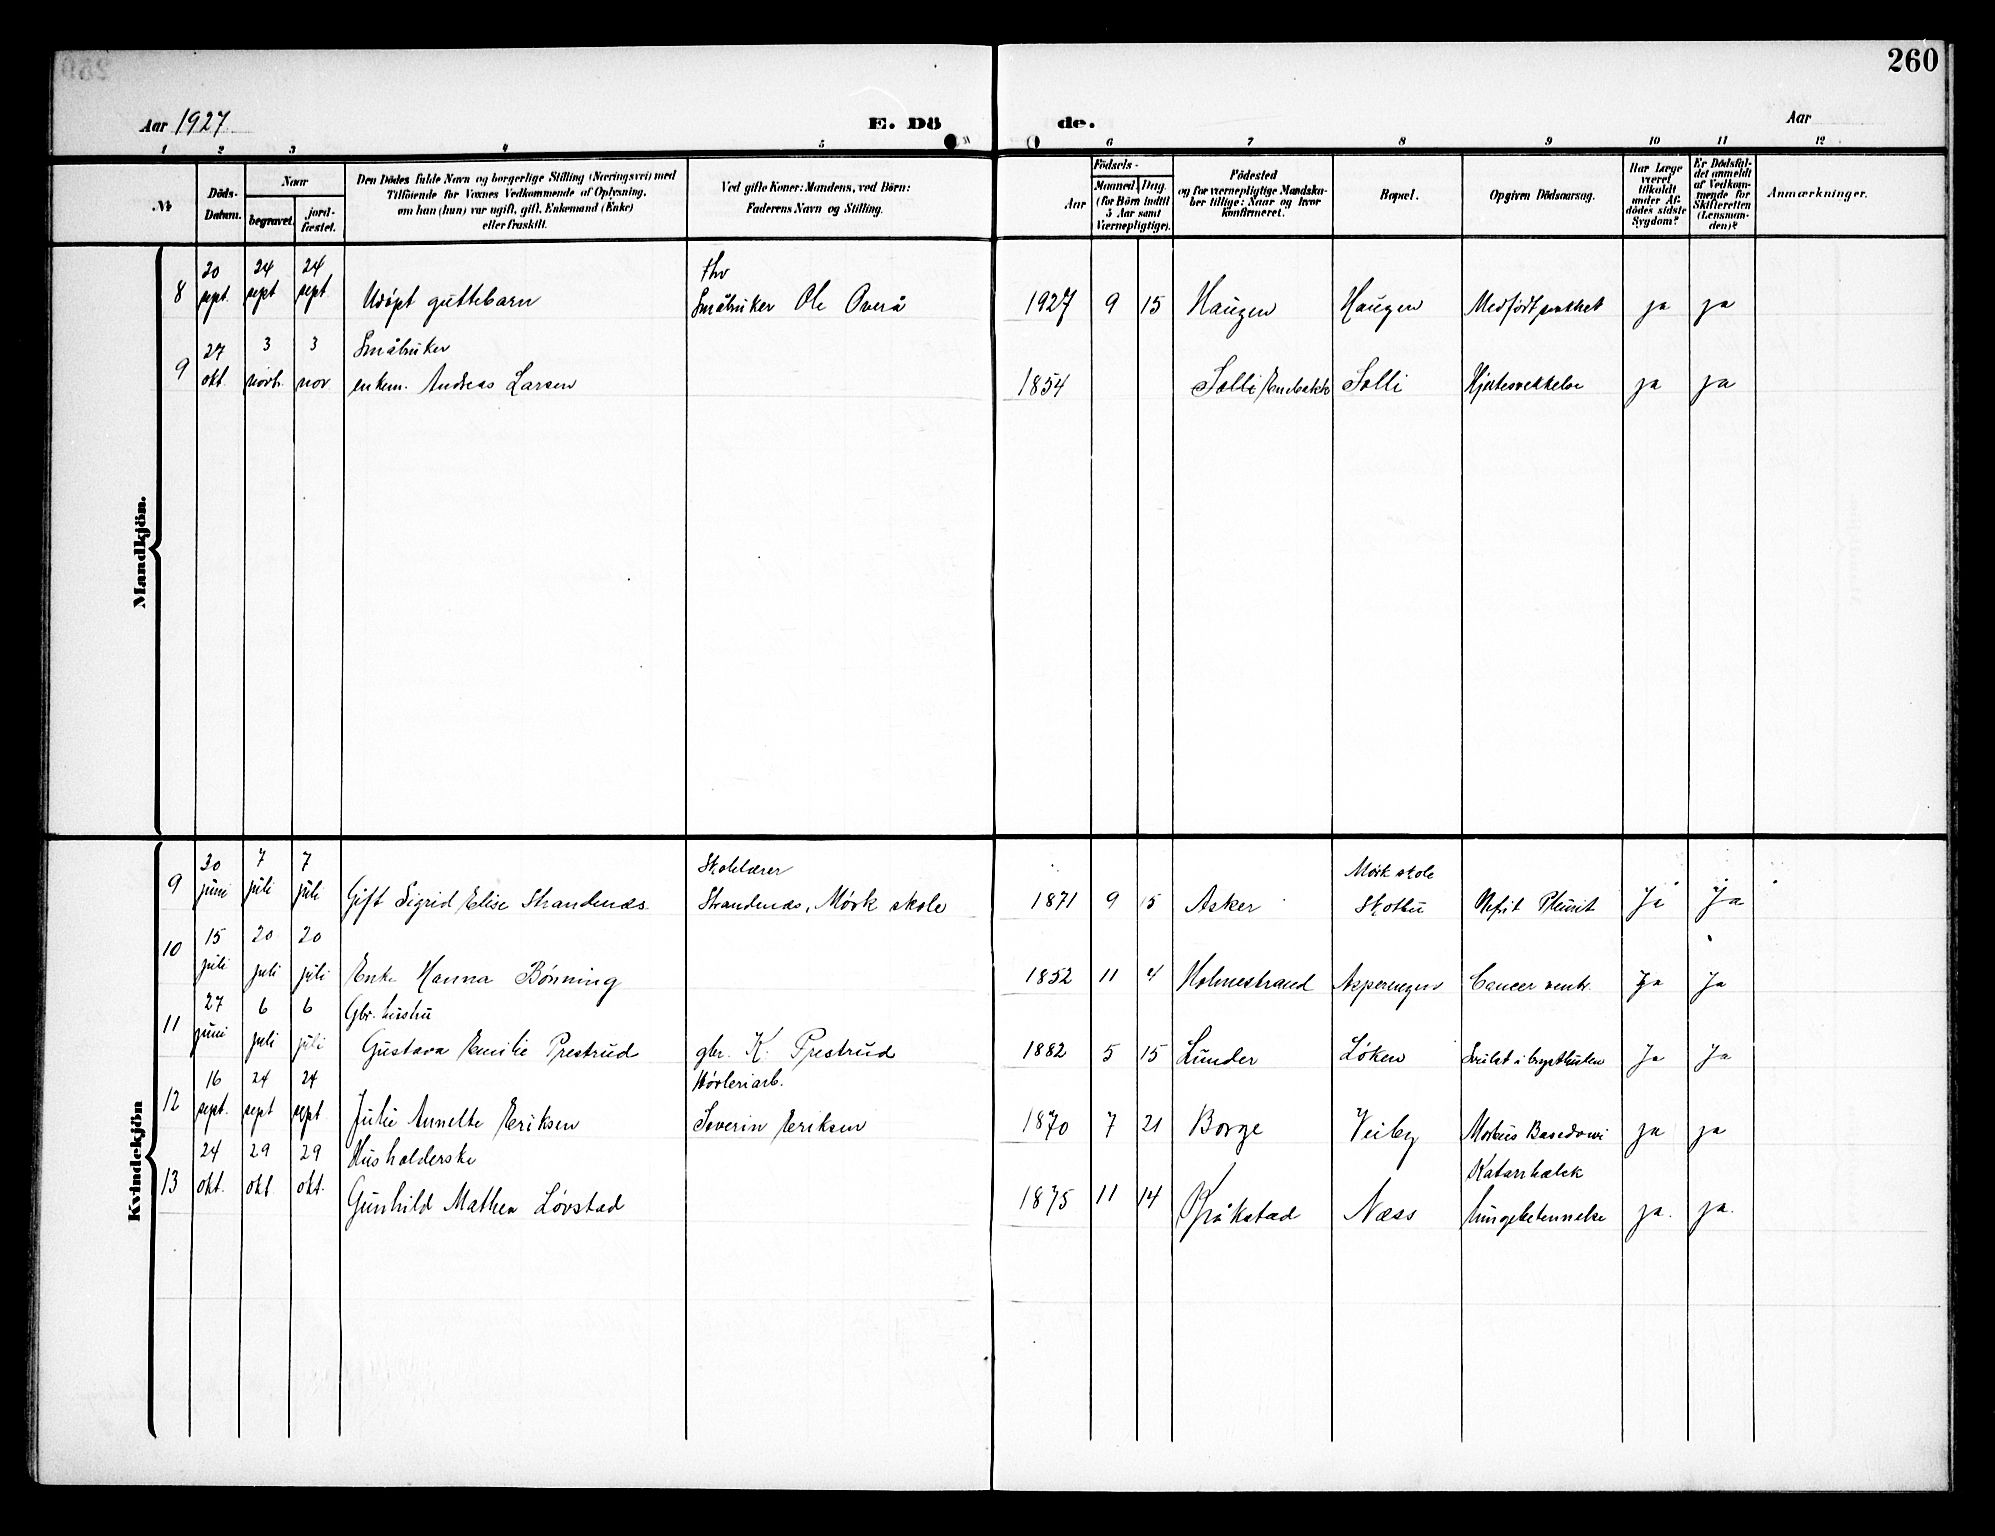 260
Aar 1927
E. Dö
de.
Aar
1 2 3 4 5 6 7 8 9 10 11 12
№
Döds-
Datum.
Naar
begravet.
jord-
fæstet.
Den Dödes fulde Navn og borgerlige Stilling (Næringsvei) med
Tilföiende for Voxnes Vedkommende af Oplysning,
om han (hun) var ugift, gift, Enkemand (Enke)
eller fraskilt.
Ved gifte Koner: Mandens, ved Börn:
Faderens Navn og Stilling.
Födsels-
Aar
Maaned. Dag.
(for Börn indtil
5 Aar samt
Værnepligtige).
Födested
og for værnepligtige Mandska-
ber tillige: Naar og hvor
konfirmeret.
Bopæl.
Opgiven Dödsaarsag.
Har Læge
været
tilkaldt
under Af-
dödes sidste
Sygdom?
Er Dödsfal-
det anmeldt
af Vedkom-
mende for
Skifteretten
(Lensman-
den)?
Anmærkninger.
Mandkjön.
20 24 24 fhv
8 sept. sept sept Udöpt guttebarn Småbruker Ole Overå 1927 9 15 Haugen Haugen Medfödt ja ja
27 3 3 Småbruker
9 okt. novb. nov enkem. Andreas Larsen 1854 Solli Enebakk Solli Hjertesvekkelse ja ja
Kvindekjön
30 7 7 Skolelærer Mörk skole
9 juni juli juli Gift Sigrid Elise Strandenæs Strandenæs, Mörk skole 1871 9 15 Asker Skotbu Nefrit Pleurit Ja Ja
15 20 20
10 juli juli juli Enke Hanna Bönning 1852 11 4 Holmestrand Asperengen Cancer ventr. Ja Ja
27 6 6 Gbr. hustru
11 juni juli juli Gustava Emilie Prestrud gbr. K. Prestrud 1882 5 15 Lunder Löken Ja Ja
16 24 24 Hövleriarb.
12 sept. sept sept Julie Annette Eriksen Severin Eriksen 1870 7 21 Borge Veiby Morbus Basedowi ja ja
24 29 29 Husholderske Katarrhalsk
13 okt. okt okt. Gunhild Mathea Lövstad 1875 11 14 Kråkstad Næss lungebetennelse ja. ja.